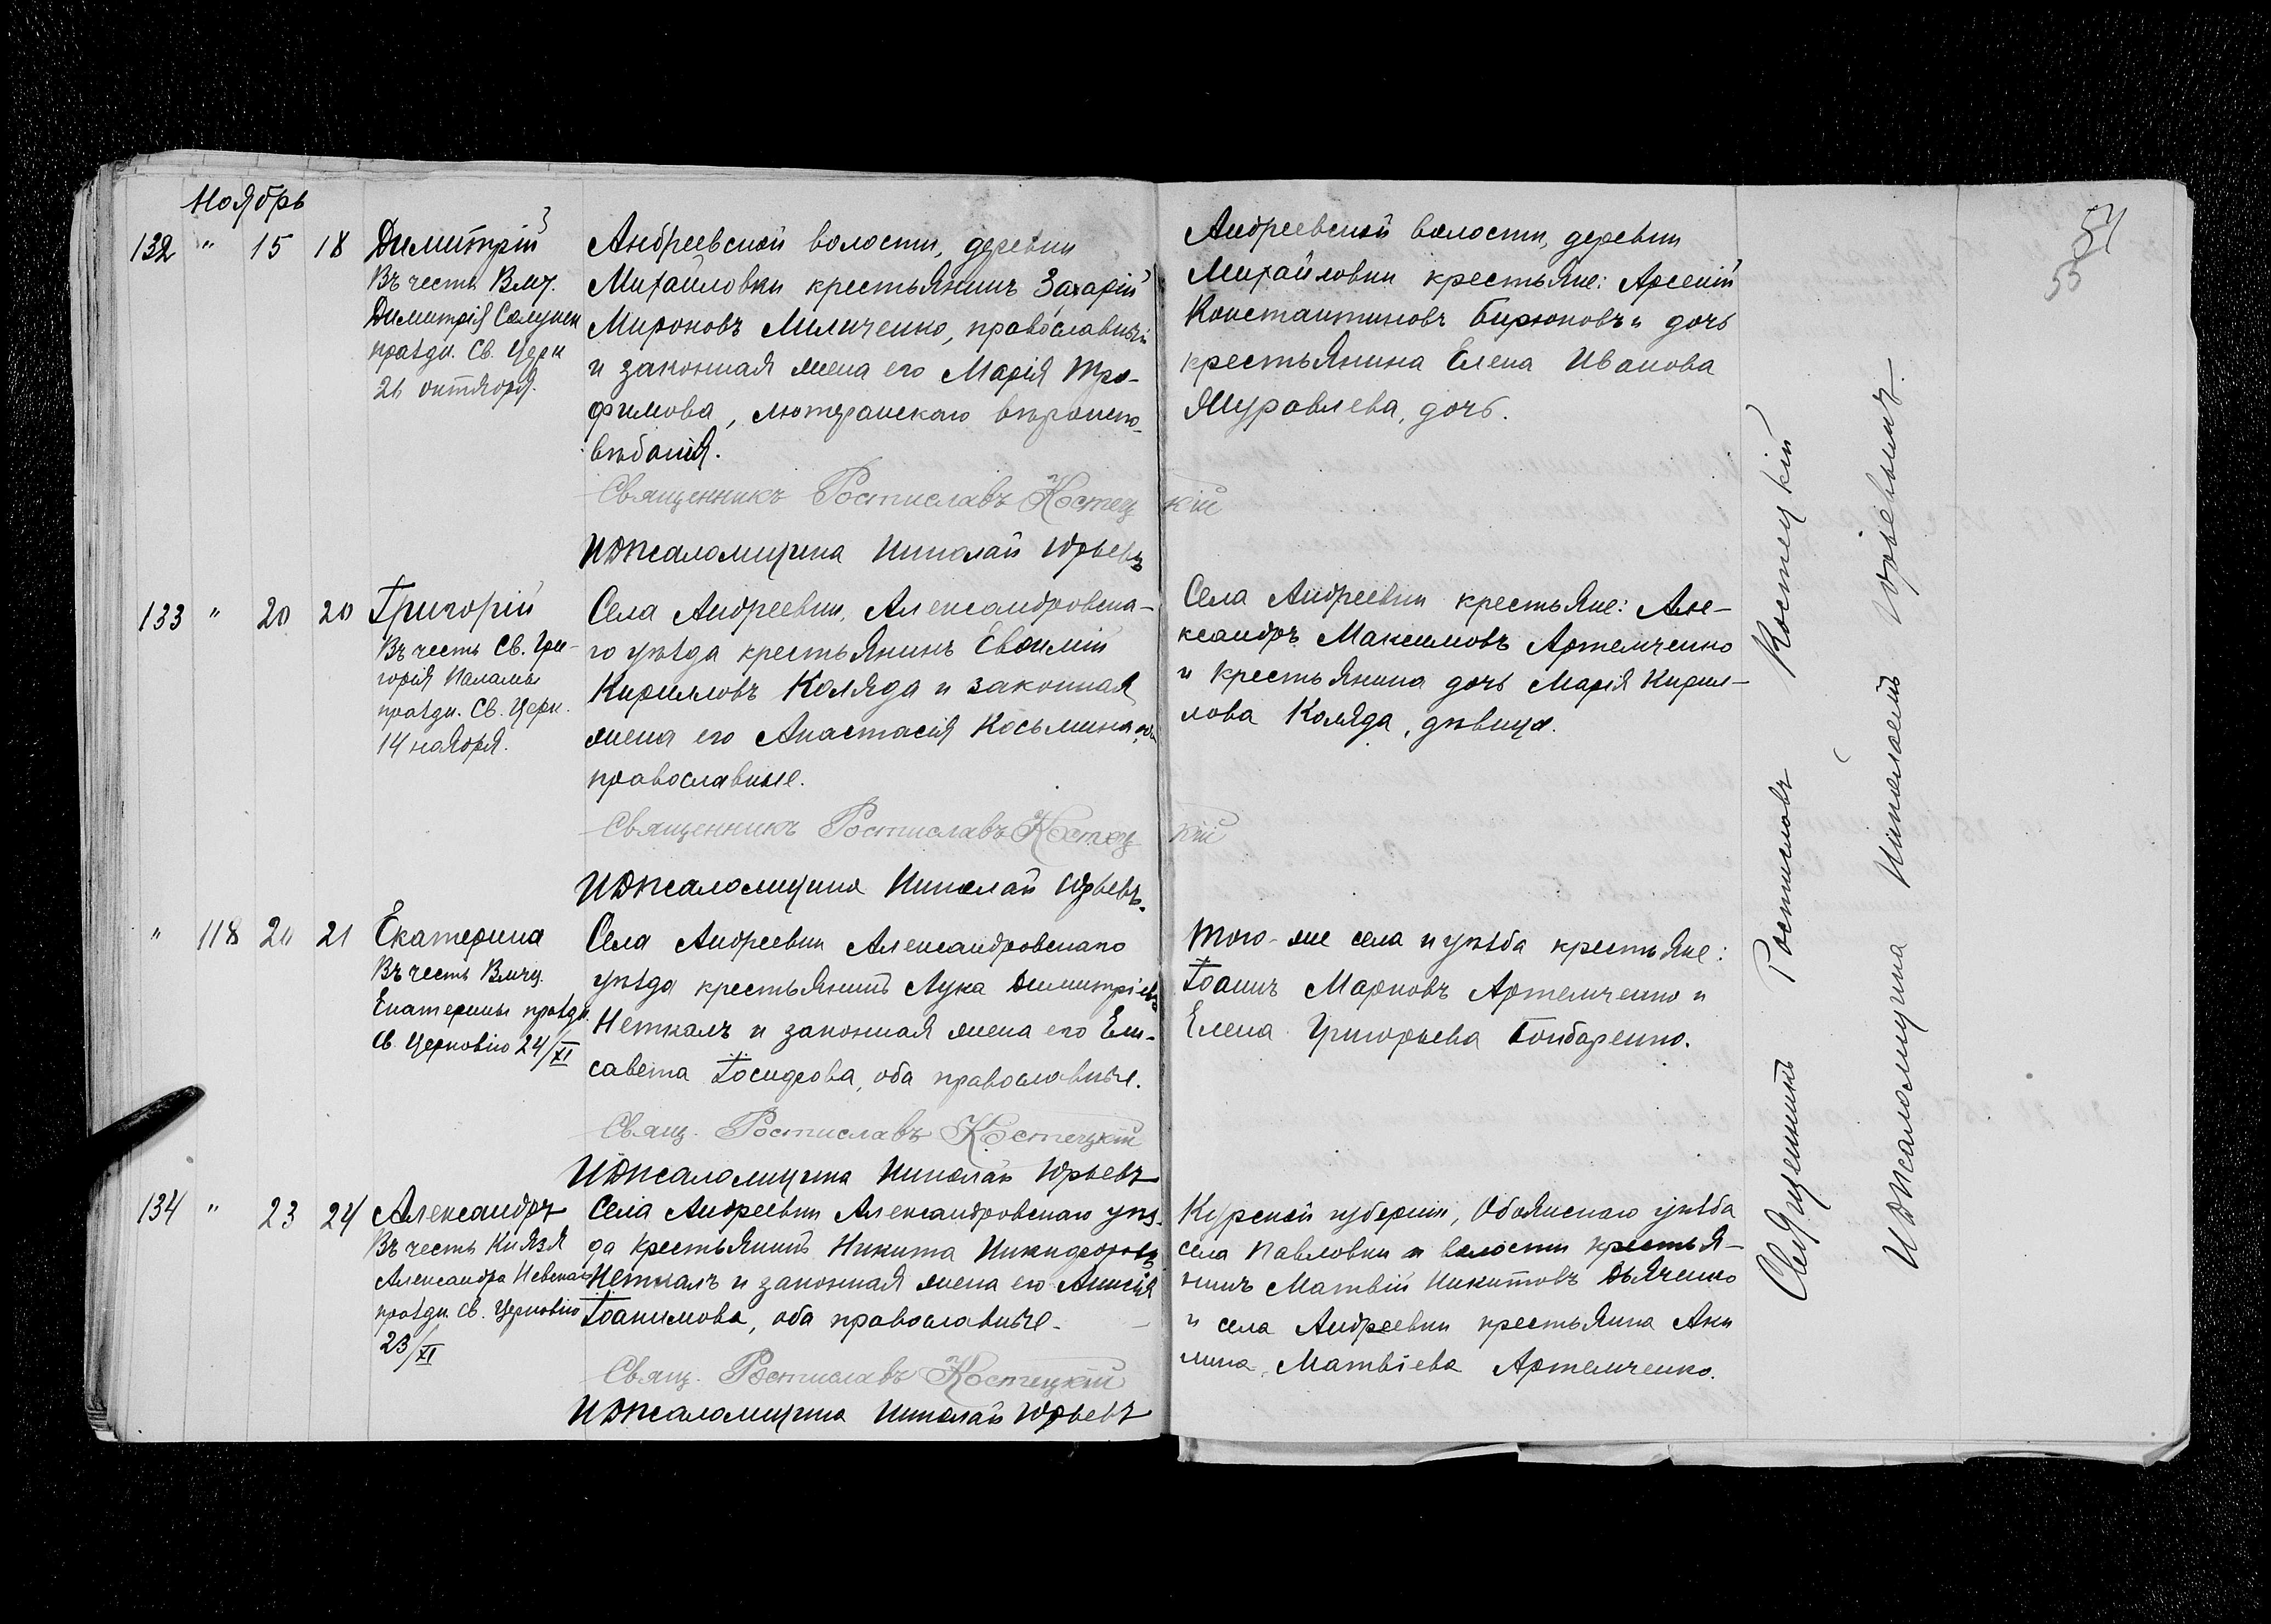 Ноябрь
132 " 15 18 Димитрій
Въ честь Влмч.
Димитрія Солунск
праздн. Св. Церк
26 октября.
Андреевской волости, деревни
Михайловки крестьянинъ Захарій
Мироновъ Миличенко, православный
и законная жена его Марія Тро-
фимова, лютеранскаго вѣроиспо-
вѣданія.
Священникъ Ростиславъ Костецкій
И.д. псаломщика Николай Юрьевъ
Андреевской волости, деревни
Михайловки крестьяне: Арсеній
Константиновъ Бирюковъ и дочь
крестьянина Елена Иванова
Журавлева, дочь.
133 " 20 20 Григорій
Въ честь Св. Гри-
горія Паламы
праздн. Св. Церк.
14 ноября.
Села Андреевки, Александровска-
го уѣзда крестьянинъ Евѳимій
Кирилловъ Коляда и законная
жена его Анастасія Косьмина, оба
православные.
Священникъ Ростиславъ Костецкій
И.д. псаломщика Николай Юрьевъ.
Села Андреевки крестьяне: Але-
ксандръ Максимовъ Артемченко
и крестьянина дочь Марія Кирил-
лова Коляда, дѣвица.
" 118 20 21 Екатерина
Въ честь Влмчц.
Екатерины праздн.
Св. Церковію 24/XI
Села Андреевки Александровскаго
уѣзда крестьянинъ Лука Димитріевъ
Неткалъ и законная жена его Ели-
савета Іосифова, оба православные.
Свящ. Ростиславъ Костецкій
И.д. псаломщика Николай Юрьевъ
Того-же села и уѣзда крестьяне:
Іоаннъ Марковъ Артемченко и
Елена Григорьева Бондаренко.
134 " 23 24 Александръ
Въ честь Князя
Александра Невскаго
праздн. Св. Церковію
23/XI
Села Андреевки Александровскаго уѣз-
да крестьянинъ Никита Никифоровъ
Неткалъ и законная жена его Анисія
Іоакимова, оба православные.
Свящ. Ростиславъ Костецкій
И.д. псаломщика Николай Юрьевъ
Курской губерніи, Обоянскаго уѣзда
села Павловки и волости крестья-
нинъ Матвій Никитовъ Дьяченко
и села Андреевки крестьянка Аки
лина Матвіева Артемченко.
Священникъ Ростиславъ Костецкій
И.д. псаломщика Николай Юрьевъ